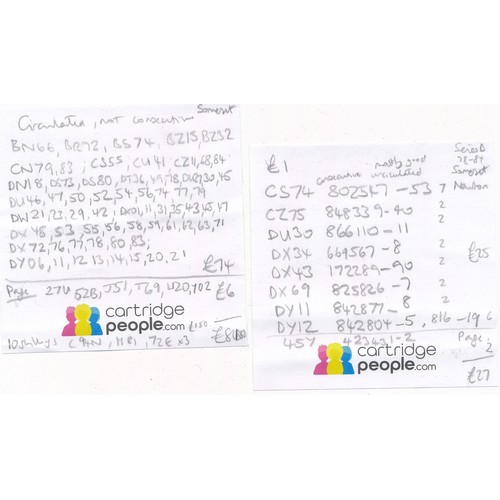 Circulated, not consecutive Somerset
BN66, BR72, BS74, BZ15, BZ32
CN79, 83; CS55, CU41 CZ11, 68, 84
DN18, DS73, DS80, DT36, 49, 78, DU27, 30, 45
DU46, 47, 50, 52, 54, 56, 74, 77, 79
DW21, 23, 29, 42, DX01, 11, 31, 35, 43, 45, 47
DX 48, 53, 55, 56, 58, 59, 61, 62, 63, 71
DX72, 76, 77, 78, 80, 83;
DY06, 11, 12, 13, 14, 15, 20, 21 £74
Page 27U 52B, J51, T69, U20, Y02 £6
cartridge
people.com
10 shillings C94N, M81, 72E x3 £1.50
£1 consecutive mostly good circulated Series D 78-84 Somerset
CS74 802547-53 7 Newton
CZ75 848339-40 2
DU30 866110-11 2
DX34 669567-8 2 £25
DX43 172289-90 2
DX69 825826-7 2
DY11 842877-8 2
DY12 842804-5, 816-19 6
45Y 423431-2 Page 2
cartridge
people.com
£27